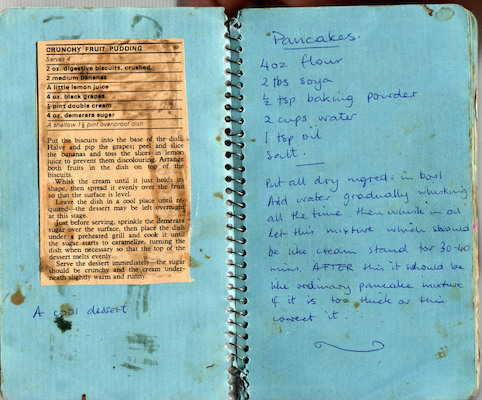 CRUNCHY FRUIT PUDDING
Serves 4
2 oz. digestive biscuits, crushed
2 medium bananas
A little lemon juice
4 oz. black grapes
½ pint double cream
4 oz. demerara sugar
A shallow 1½ pint ovenproof dish
Put the biscuits into the base of the dish.
Halve and pip the grapes; peel and slice
the bananas and toss the slices in lemon
juice to prevent them discolouring. Arrange
both fruits in the dish on top of the
biscuits.
Whisk the cream until it just holds its
shape, then spread it evenly over the fruit
so that the surface is level.
Leave the dish in a cool place until re-
quired—the dessert may be left overnight
at this stage.
Just before serving, sprinkle the demerara
sugar over the surface, then place the dish
under a preheated grill and cook it until
the sugar starts to caramelize, turning the
dish when necessary so that the top of the
dessert melts evenly.
Serve the dessert immediately—the sugar
should be crunchy and the cream under-
neath slightly warm and runny.
A cool dessert
Pancakes.
4oz flour
2 tbs soya
½ tsp baking powder
2 cups water
1 tsp oil
Salt.
Put all dry ingred. in bowl
Add water gradually whisking
all the time. then whisk in oil
Let this mixture which should
be like cream stand for 30-40
mins. AFTER this it should be
like ordinary pancake mixture
if it is too thick or thin
correct it.